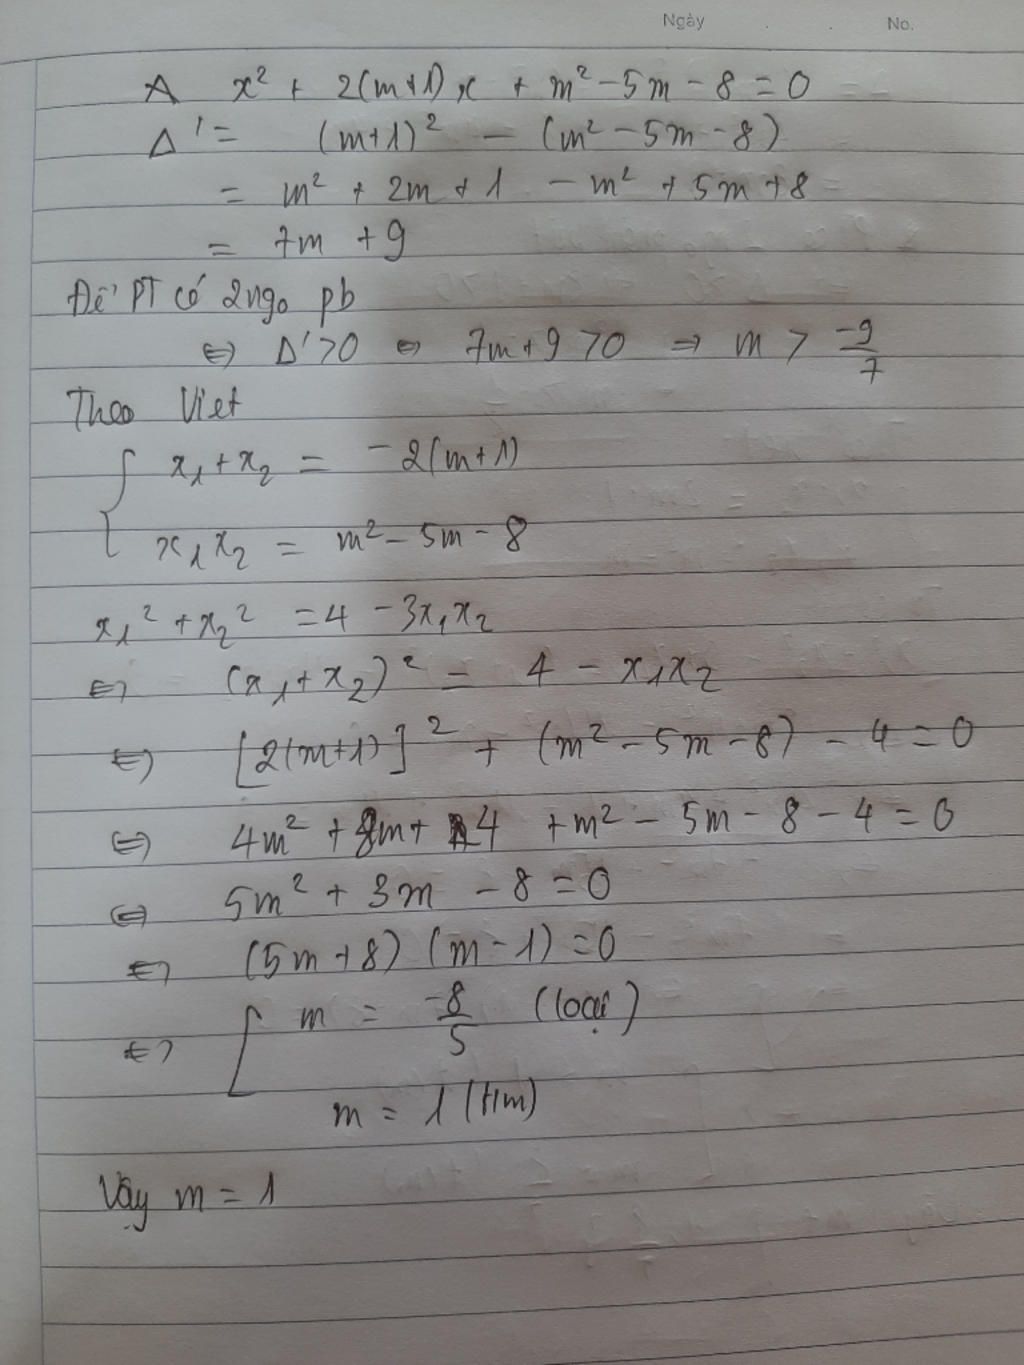 Ngày . . No.
A x² + 2(m+1)x + m² - 5m - 8 = 0
Δ' = (m+1)² - (m² - 5m - 8)
= m² + 2m + 1 - m² + 5m + 8
= 7m + 9
Để PT có 2 ngo pb
⇔ Δ' > 0 ⇔ 7m + 9 > 0 ⇒ m > -9/7
Theo Viet
{ x₁ + x₂ = -2(m+1)
x₁x₂ = m² - 5m - 8
x₁² + x₂² = 4 - 3x₁x₂
⇔ (x₁ + x₂)² = 4 - x₁x₂
⇔ [2(m+1)]² + (m² - 5m - 8) - 4 = 0
⇔ 4m² + 8m + 4 + m² - 5m - 8 - 4 = 0
⇔ 5m² + 3m - 8 = 0
⇔ (5m + 8) (m - 1) = 0
⇔ [ m = -8/5 (loại)
m = 1 (t/m)
Vậy m = 1